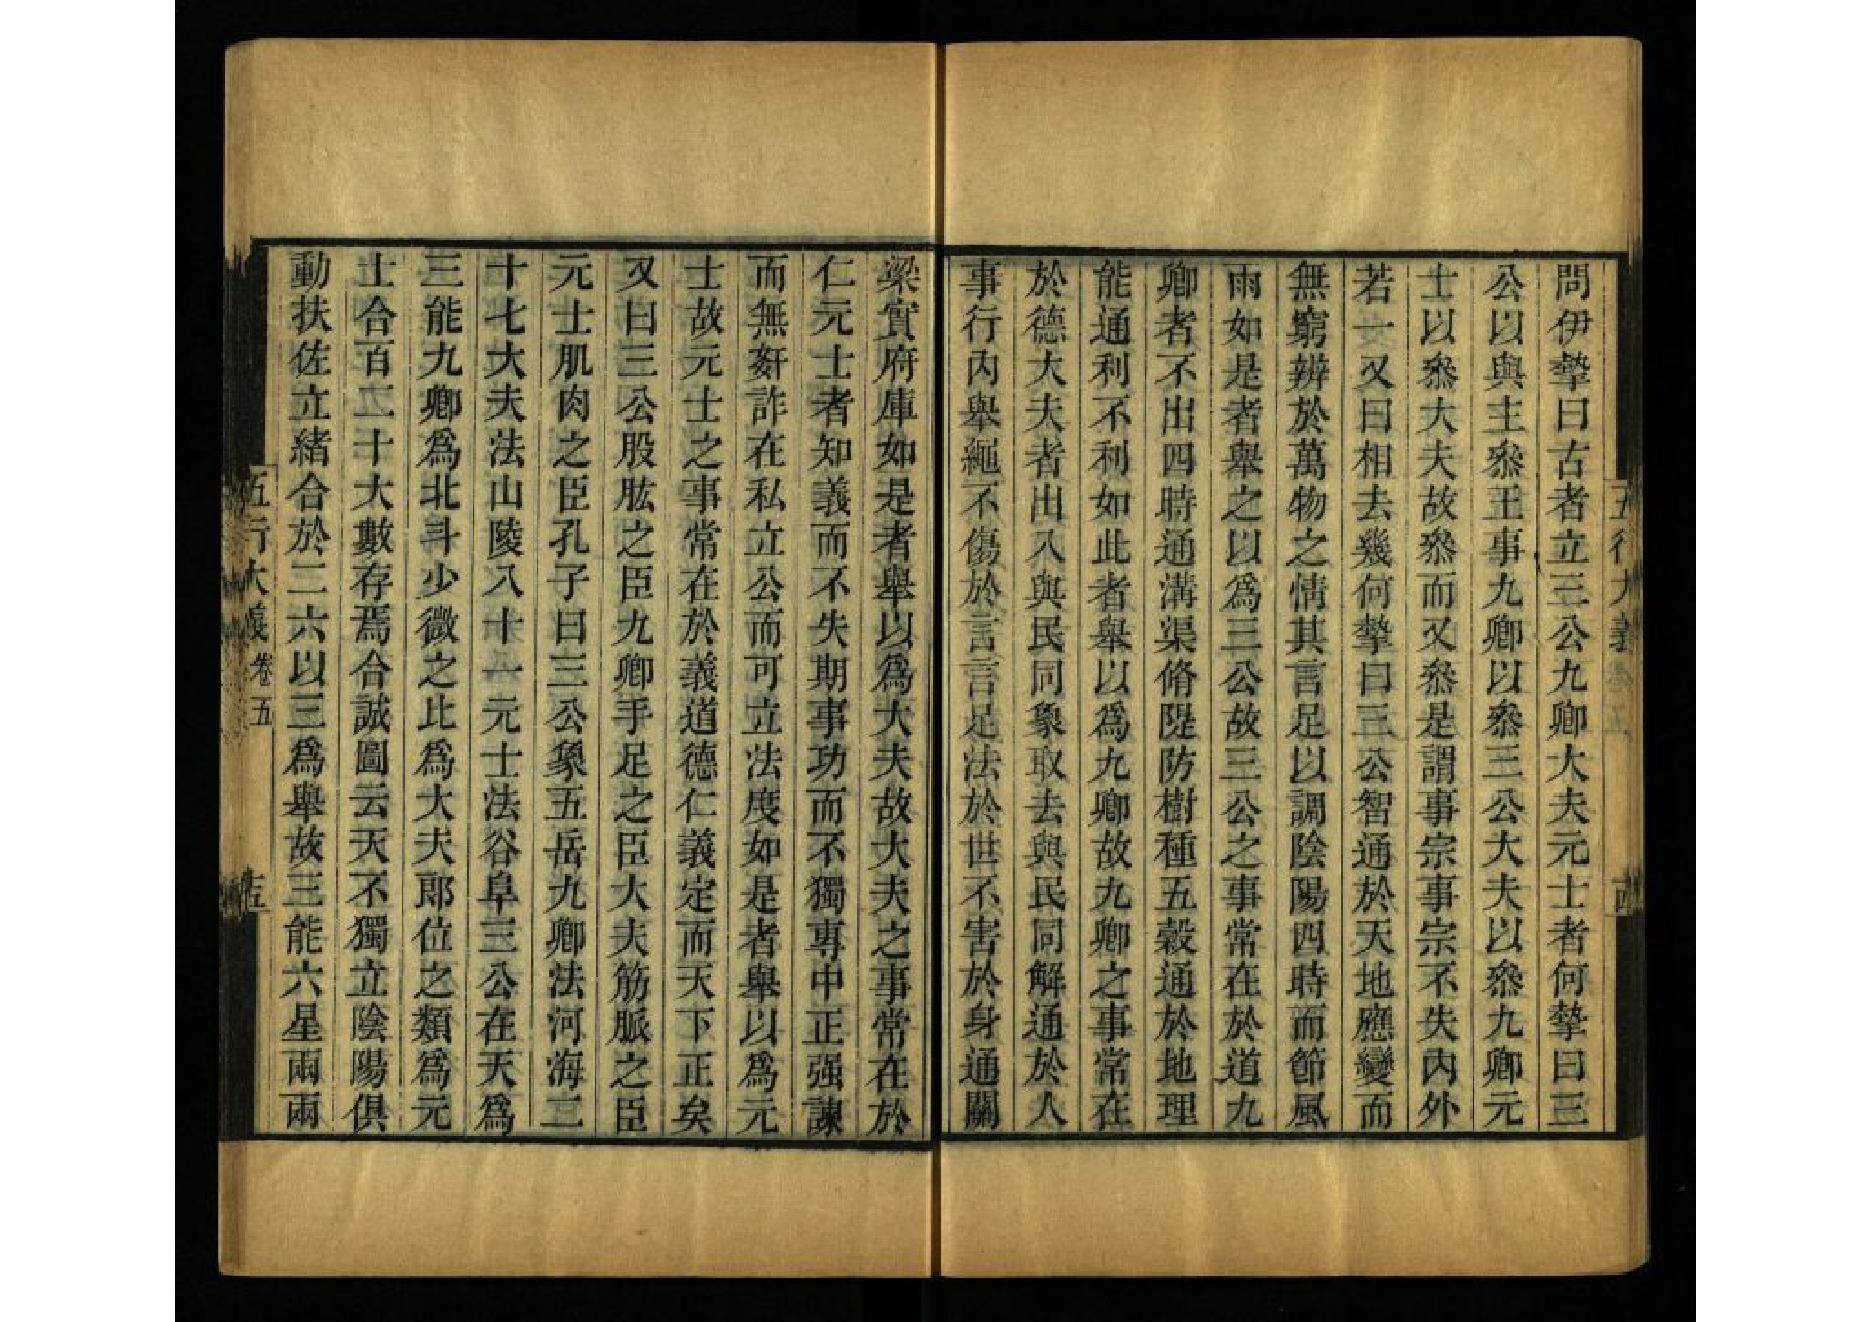 五行大義 卷五 十四
問伊摯曰古者立三公九卿大夫元士者何摯曰三
公以與主叅王事九卿以叅三公大夫以叅九卿元
士以叅大夫故叅而又叅是謂事宗事宗不失內外
若一又曰相去幾何摯曰三公智通於天地應變而
無窮辨於萬物之情其言足以調陰陽四時而節風
雨如是者舉之以為三公故三公之事常在於道九
卿者不出四時通溝渠脩隄防樹種五穀通於地理
能通利不利如此者舉以為九卿故九卿之事常在
於德大夫者出入與民同象取去與民同解通於人
事行內舉繩不傷於言言足法於世不害於身通關
梁實府庫如是者舉以為大夫故大夫之事常在於
仁元士者知義而不失期事功而不獨專中正强諫
而無姧詐在私立公而可立法度如是者舉以為元
士故元士之事常在於義道德仁義定而天下正矣
又曰三公股肱之臣九卿手足之臣大夫筋脈之臣
元士肌肉之臣孔子曰三公象五岳九卿法河海二
十七大夫法山陵八十一元士法谷阜三公在天為
三能九卿為北斗少微之比為大夫郎位之類為元
士合百二十大數存焉合誠圖云天不獨立陰陽俱
動扶佐立緒合於二六以三為舉故三能六星兩兩
五行大義 卷五 十五